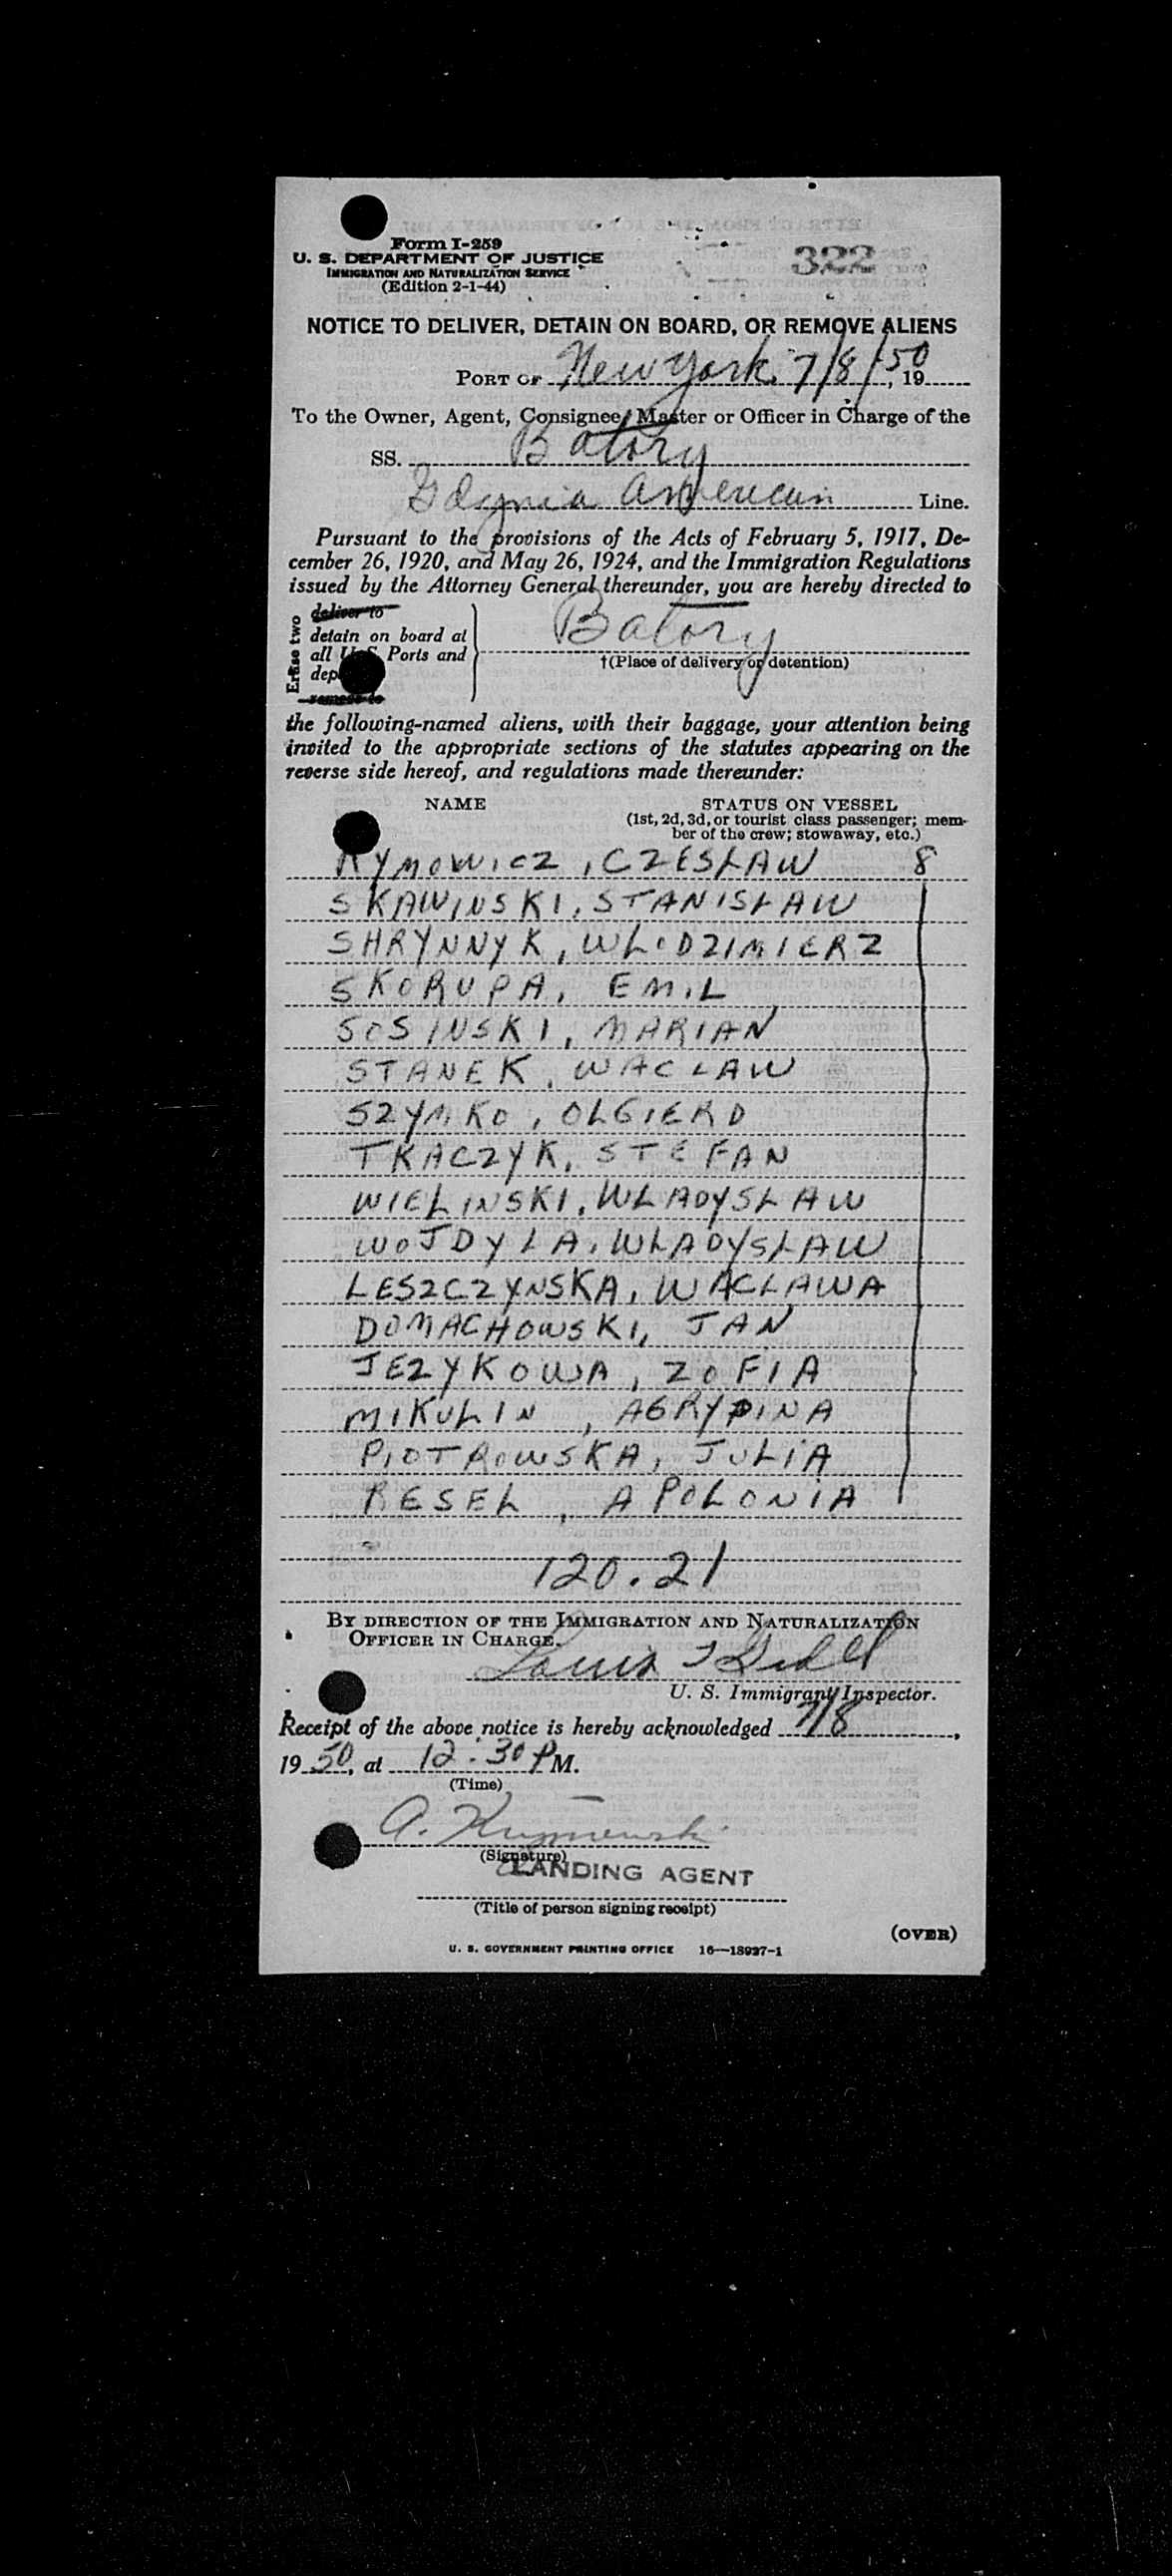 Form I-259
U. S. DEPARTMENT OF JUSTICE
IMMIGRATION AND NATURALIZATION SERVICE
(Edition 2-1-44)
322
NOTICE TO DELIVER, DETAIN ON BOARD, OR REMOVE ALIENS
PORT OF New York, 7/8/50, 19
To the Owner, Agent, Consignee, Master or Officer in Charge of the
SS. Batory
Gdynia American Line.
Pursuant to the provisions of the Acts of February 5, 1917, De-
cember 26, 1920, and May 26, 1924, and the Immigration Regulations
issued by the Attorney General thereunder, you are hereby directed to
Erase two
deliver to
detain on board at
all U.S. Ports and
remove to
Batory
†(Place of delivery or detention)
the following-named aliens, with their baggage, your attention being
invited to the appropriate sections of the statutes appearing on the
reverse side hereof, and regulations made thereunder:
NAME
STATUS ON VESSEL
(1st, 2d, 3d, or tourist class passenger; mem-
ber of the crew; stowaway, etc.)
RYMOWICZ, CZESŁAW 8
SKAWINSKI, STANISŁAW
SHRYNNYK, WŁODZIMIERZ
SKORUPA, EMIL
SOSINSKI, MARIAN
STANEK, WACLAW
SZYMKO, OLGIERD
TKACZYK, STEFAN
WIELINSKI, WŁADYSŁAW
WOJDYŁA, WŁADYSŁAW
LESZCZYNSKA, WACŁAWA
DOMACHOWSKI, JAN
JEZYKOWA, ZOFIA
MIKULIN, AGRYPINA
PIOTROWSKA, JULIA
RESEL, APOLONIA
120.21
BY DIRECTION OF THE IMMIGRATION AND NATURALIZATION
OFFICER IN CHARGE.
Louis
U. S. Immigrant Inspector.
Receipt of the above notice is hereby acknowledged 7/8,
19 50, at 12:30 P M.
(Time)
A.
(Signature)
LANDING AGENT
(Title of person signing receipt)
(OVER)
U. S. GOVERNMENT PRINTING OFFICE 16—18927-1